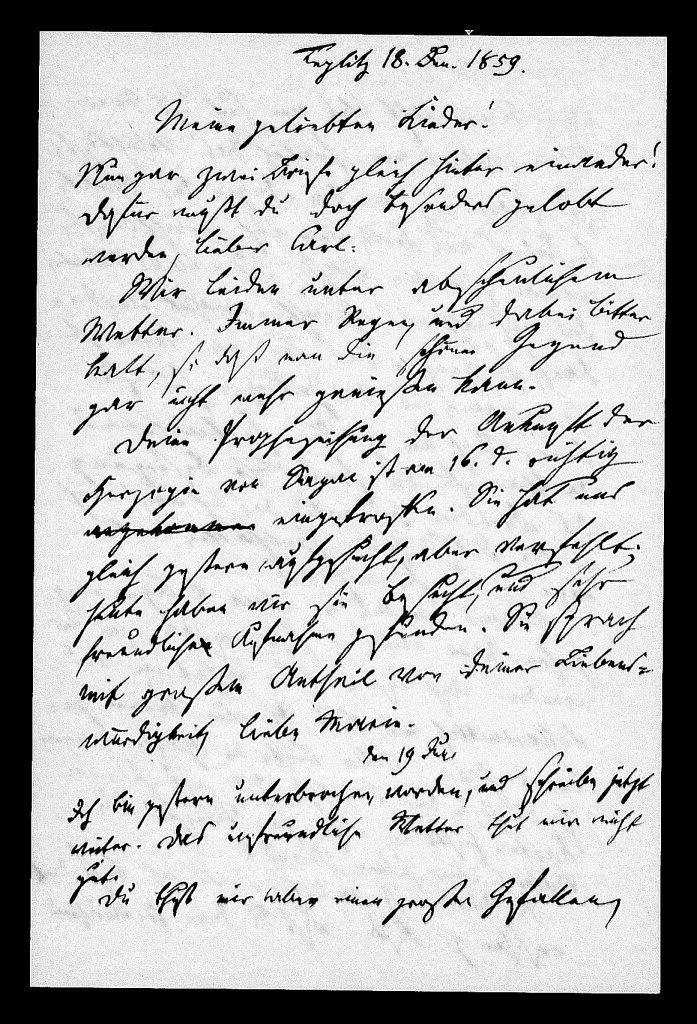 Teplitz 18. Jun. 1859.
Meine geliebten Kinder!
Nun gar zwei Briefe gleich hinter einander!
Dafür mußt du doch besonders gelobt
werden, lieber Carl.
Wir leiden unter abscheulichem
Wetter. Immer Regen, und dabei bitter
kalt, so daß man die schöne Gegend
gar nicht mehr genießen kann.
Deine Prophezeihung der Ankunft der
Herzogin von Sagan ist am 16. d. richtig
angekommen eingetroffen. Sie hat uns
gleich gestern aufgesucht, aber verfehlt;
heute haben wir sie besucht, und sehr
freundliche Aufnahme gefunden. Sie sprach
mit großem Antheil von Deiner Liebens=
würdigkeit, liebe Marie.
den 19 Jun.
Ich bin gestern unterbrochen worden, und schreibe jetzt
weiter. Das unfreundliche Wetter thut mir nicht
gut.
Du thust mir einen großen Gefallen,